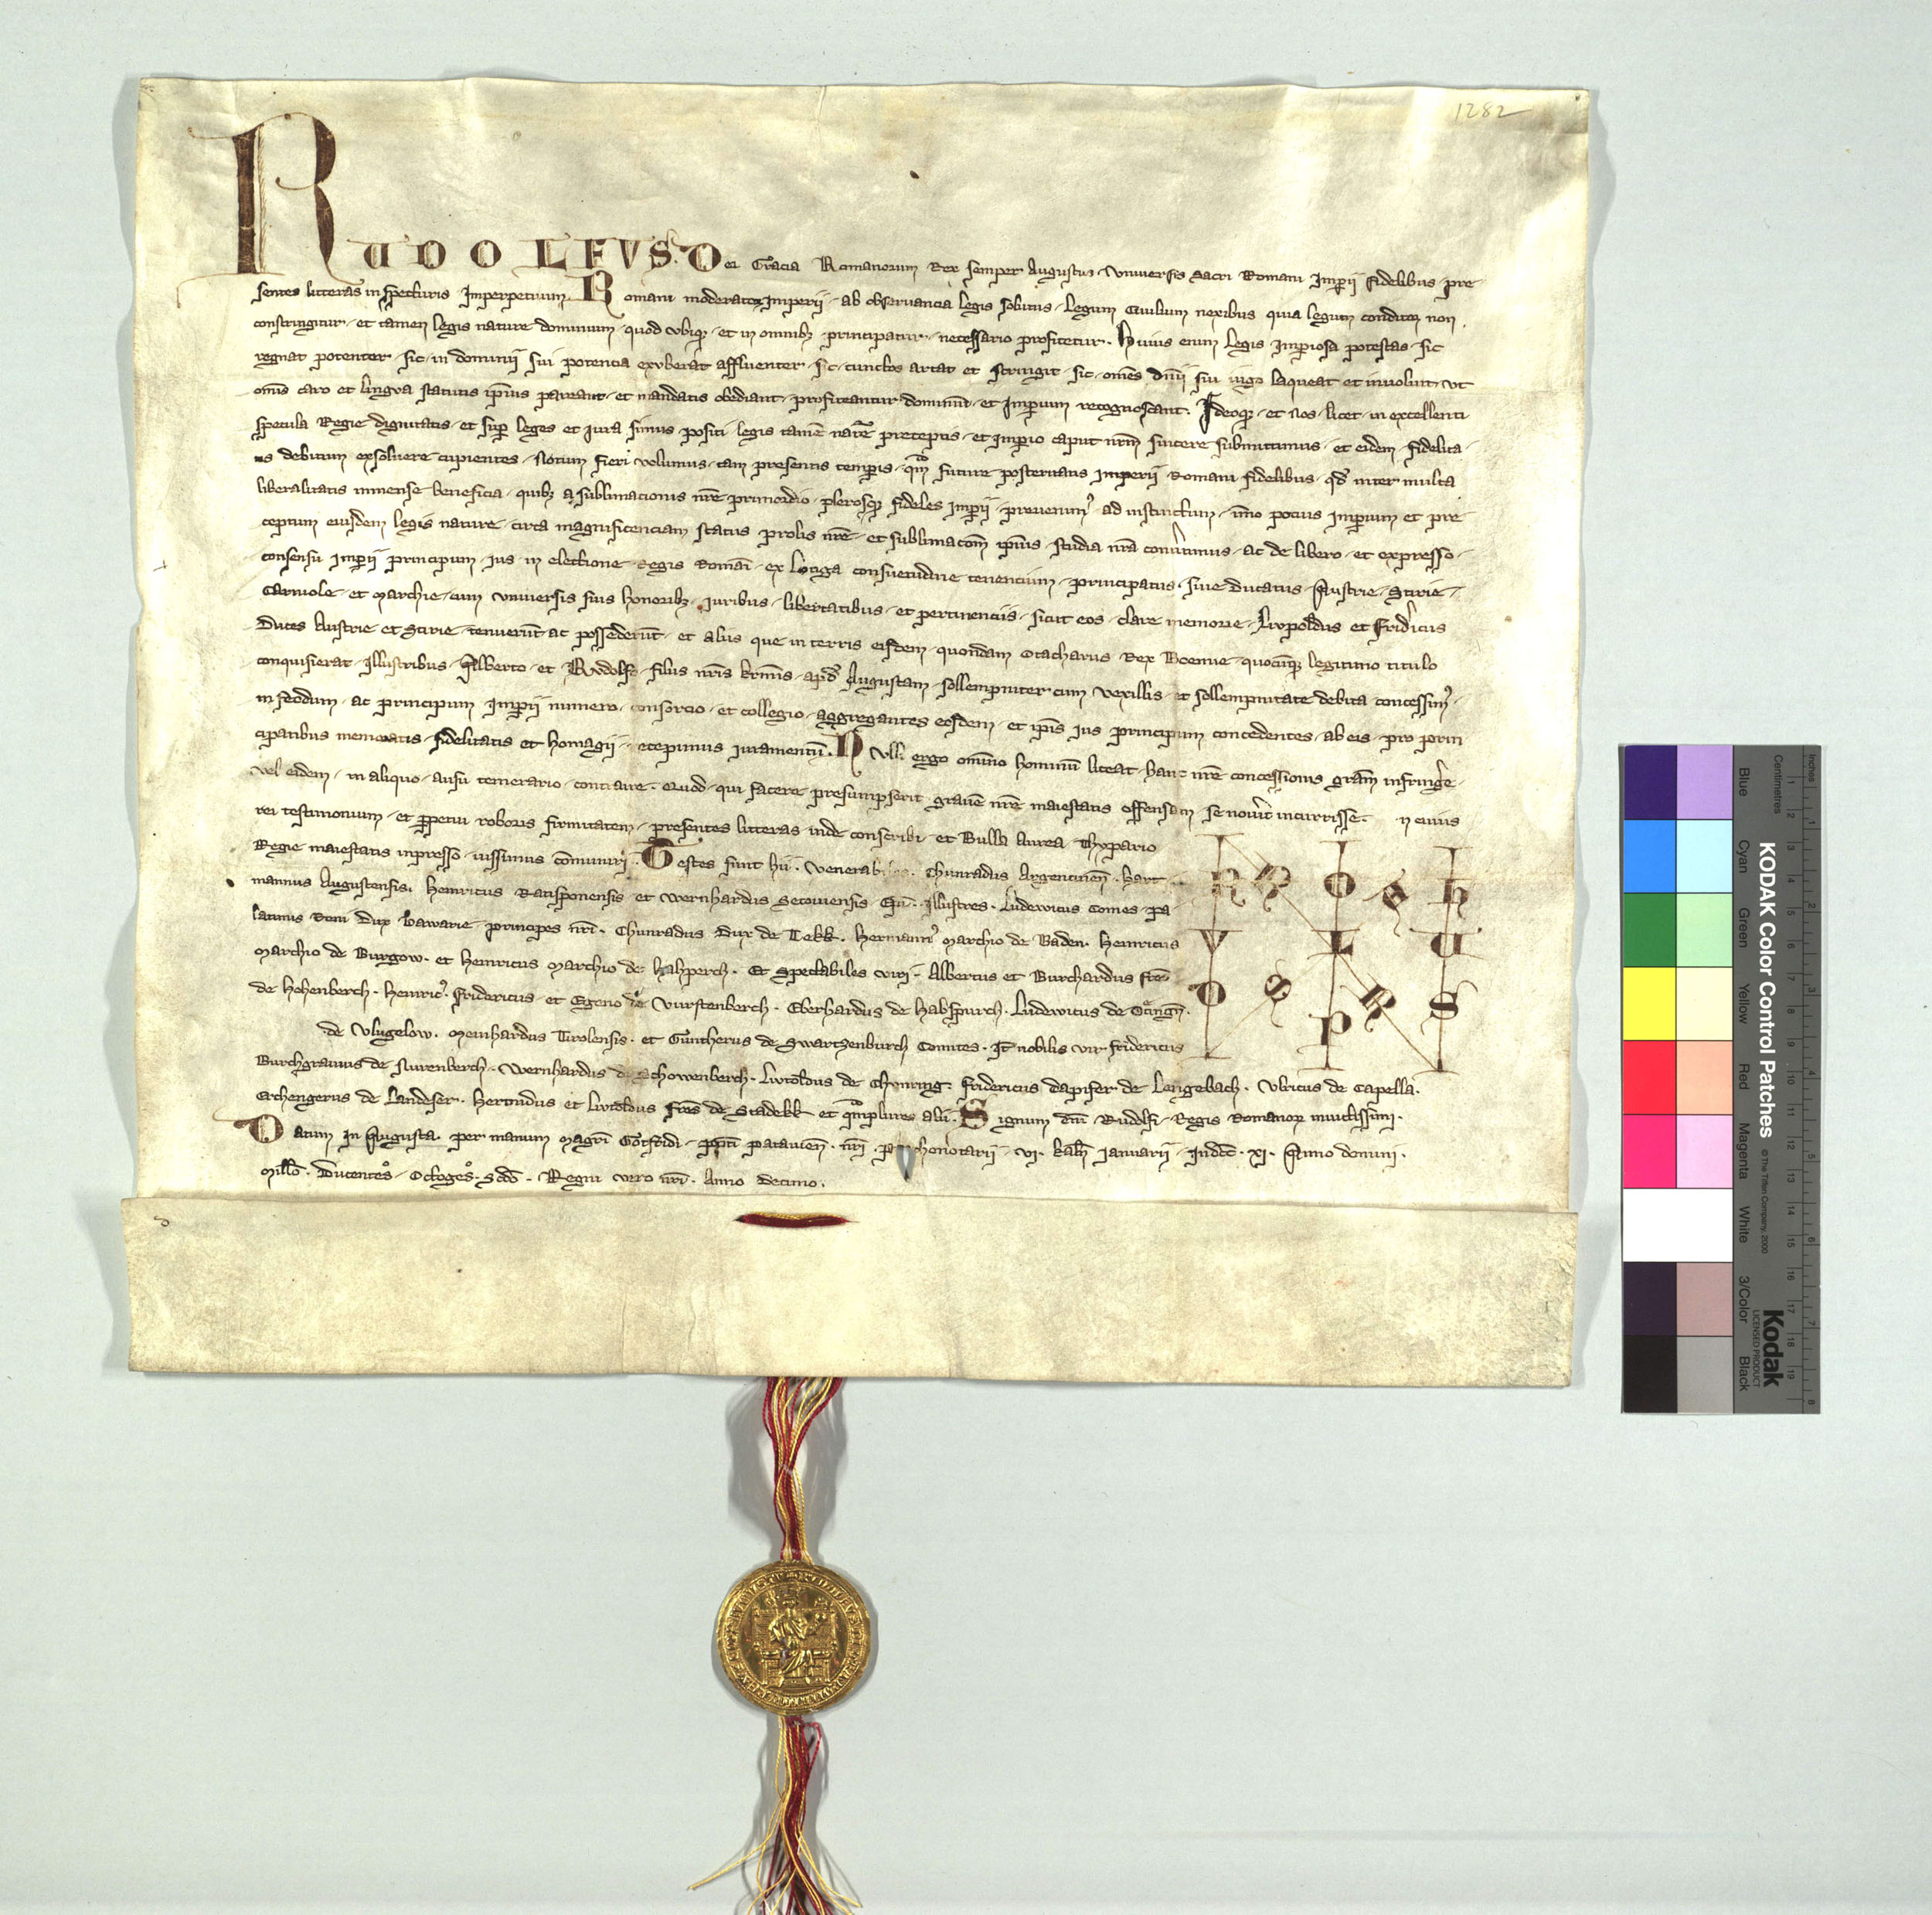 1282
RUDOLFVS. Dei Gracia Romanorum Rex semper Augustus. Vniuersis Sacri Romani Imperii fidelibus pre
sentes litteras inspecturis Imperpetuum. Romani moderator Imperii ab obseruancia legis solutus legum Ciuilium nexibus quia legum conditor non
constringitur et tamen legis nature dominium quod vbique et in omnibus principatur necessario profitetur. Huius enim legis Imperiosa potestas sic
regnat potenter sic in dominii sui potencia exuberat affluenter sic cunctos artat et stringit sic omnes dominii sui iugo laqueat et inuoluit vt
omnis caro et lingva statutis ipsius pareant et mandatis obediant profiteantur dominium et Imperium recognoscant. Ideoque et Nos licet in excellenti
specula Regie dignitatis et super leges et iura simus positi legis tamen nature preceptis et imperio caput nostrum sincere submittimus et eidem fidelita
tis debitum exsoluere cupientes Notum fieri volumus tam presentis temporis quam future posteritatis Imperii Romani fidelibus quod inter multa
liberalitatis inmense beneficia quibus a sublimacionis nostre primordio plerosque fideles Imperii preuenimus ad instinctum immo pocius imperium et pre
ceptum eiusdem legis nature circa magnificenciam status prolis nostre et sublimacionem ipsius studia nostra conuertimus ac de libero et expresso
consensu Imperii principum ius in electione Regis Romani ex longa consuetudine tenencium principatus siue Ducatus Austrie Stirie
Carniole et Marchie cum vniuersis suis honoribus iuribus libertatibus et pertinenciis sicut eos clare memorie Livpoldus et Fridericus
Duces Austrie et Stirie tenuerunt ac possederunt et aliis que in terris eisdem quondam Otacharus Rex Boemie quocunque legitimo titulo
conquisierat Illustribus Alberto et Rudolfo filiis nostris karissimis apud Augustam sollempniter cum vexillis et sollempnitate debita concessimus
in feodum ac principum Imperii numero consorcio et collegio aggregantes eosdem et ipsis ius principum concedentes ab eis pro prin
cipatibus memoratis fidelitatis et homagii recepimus iuramentum. Nulli ergo omnino hominum liceat hanc nostre concessionis graciam infringere
vel eidem in aliquo ausu temerario contraire. Quod qui facere presumpserit grauem nostre maiestatis offensam se nouerit incurrisse. n cuius
rei testimonium et perpetui roboris firmitatem presentes litteras inde conscribi et Bulla Aurea Thypario
Regie maiestatis inpresso iussimus communiri. Testes sunt hii. Venerabiles. Chunradus Argentinensis. Hart
mannus Augustensis. Heinricus Ratisponensis et Wernhardus Secouiensis Episcopi. Illustres. Ludewicus Comes pa
latinus Reni Dux Bawarie principes nostri. Chunradus Dux de Tekk. Hermannus Marchio de Baden. Heinricus
Marchio de Burgow. et Heinricus Marchio de Hahperch. Et Spectabiles viri. Albertus et Burchardus fratres
de Hohenberch. Heinricus. Fridericus et Egeno de Vurstenberch. Eberhardus de Habspurch. Ludewicus de Otingen.
de Vlugelow. Meinhardus Tirolensis. et Guntherus de Swartzenburch Comites. Item nobilis vir Fridericus
Burchgrauius de Nurenberch. Wernhardus de Schowenberch. Livtoldus de Chunring. Fridericus dapifer de Lengebach. Vlricus de Capella.
Erchengerus de Landeser. Hertnidus et Livtoldus fratres de Stadekk et quamplures alii. Signum domini Rudolfi Regis Romanorum inuictissimi.
Datum in Augusta per manum magistri Gotfridi prepositi patauiensis nostri prothonotarii VI. kalendas Ianuarii Indictione XI. Anno domini.
Millesimo. Ducentesimo. Octogesimo. Secundo. Regni vero nostri. Anno decimo.
KODAK Color Control Patches
© The Tiffen Company, 2000
Kodak
LICENSED PRODUCT
Inches
Centimetres
Blue Cyan Green Yellow Red Magenta White 3/Color Black